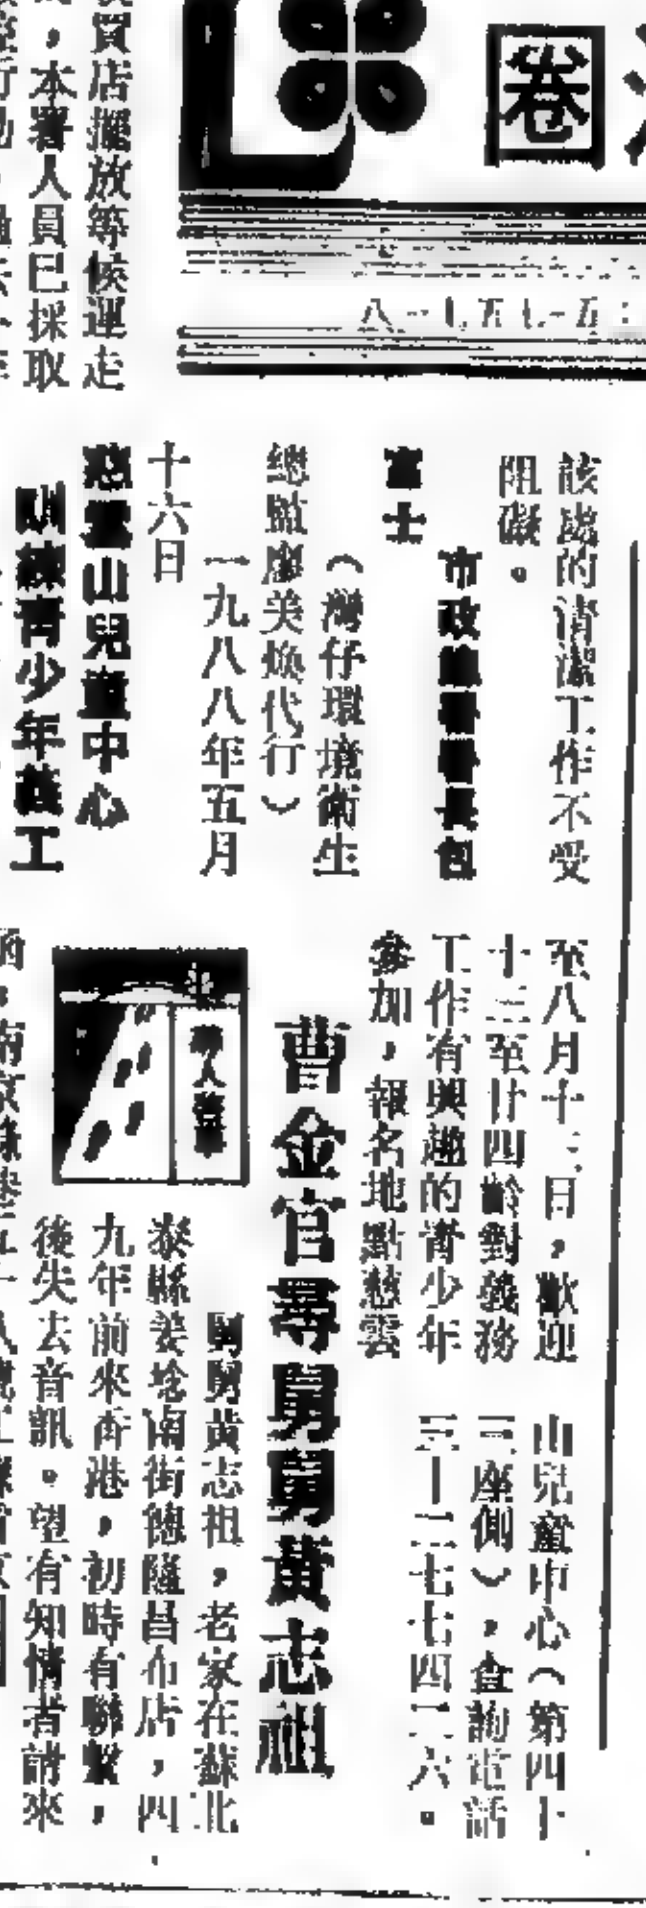 圈
八一七五七一五:
買店擺放等候運走
,本署人員已採取
該處的清潔工作不受
阻礙。
市政總署署長包
富士
(灣仔環境衛生
總監廖美煥代行)
一九八八年五月
十六日
慈雲山兒童中心
訓練青少年義工
至八月十三日,歡迎
十三至廿四齡對義務
工作有興趣的青少年
參加,報名地點慈雲
山兒童中心(第四十
三座側),查詢電話
三—二七七四二六。
尋人
曹金官尋舅舅黃志祖
舅舅黃志祖,老家在蘇北
泰縣姜埝南街德隆昌布店,四
九年前來香港,初時有聯繫,
後失去音訊。望有知情者請來
函,南京